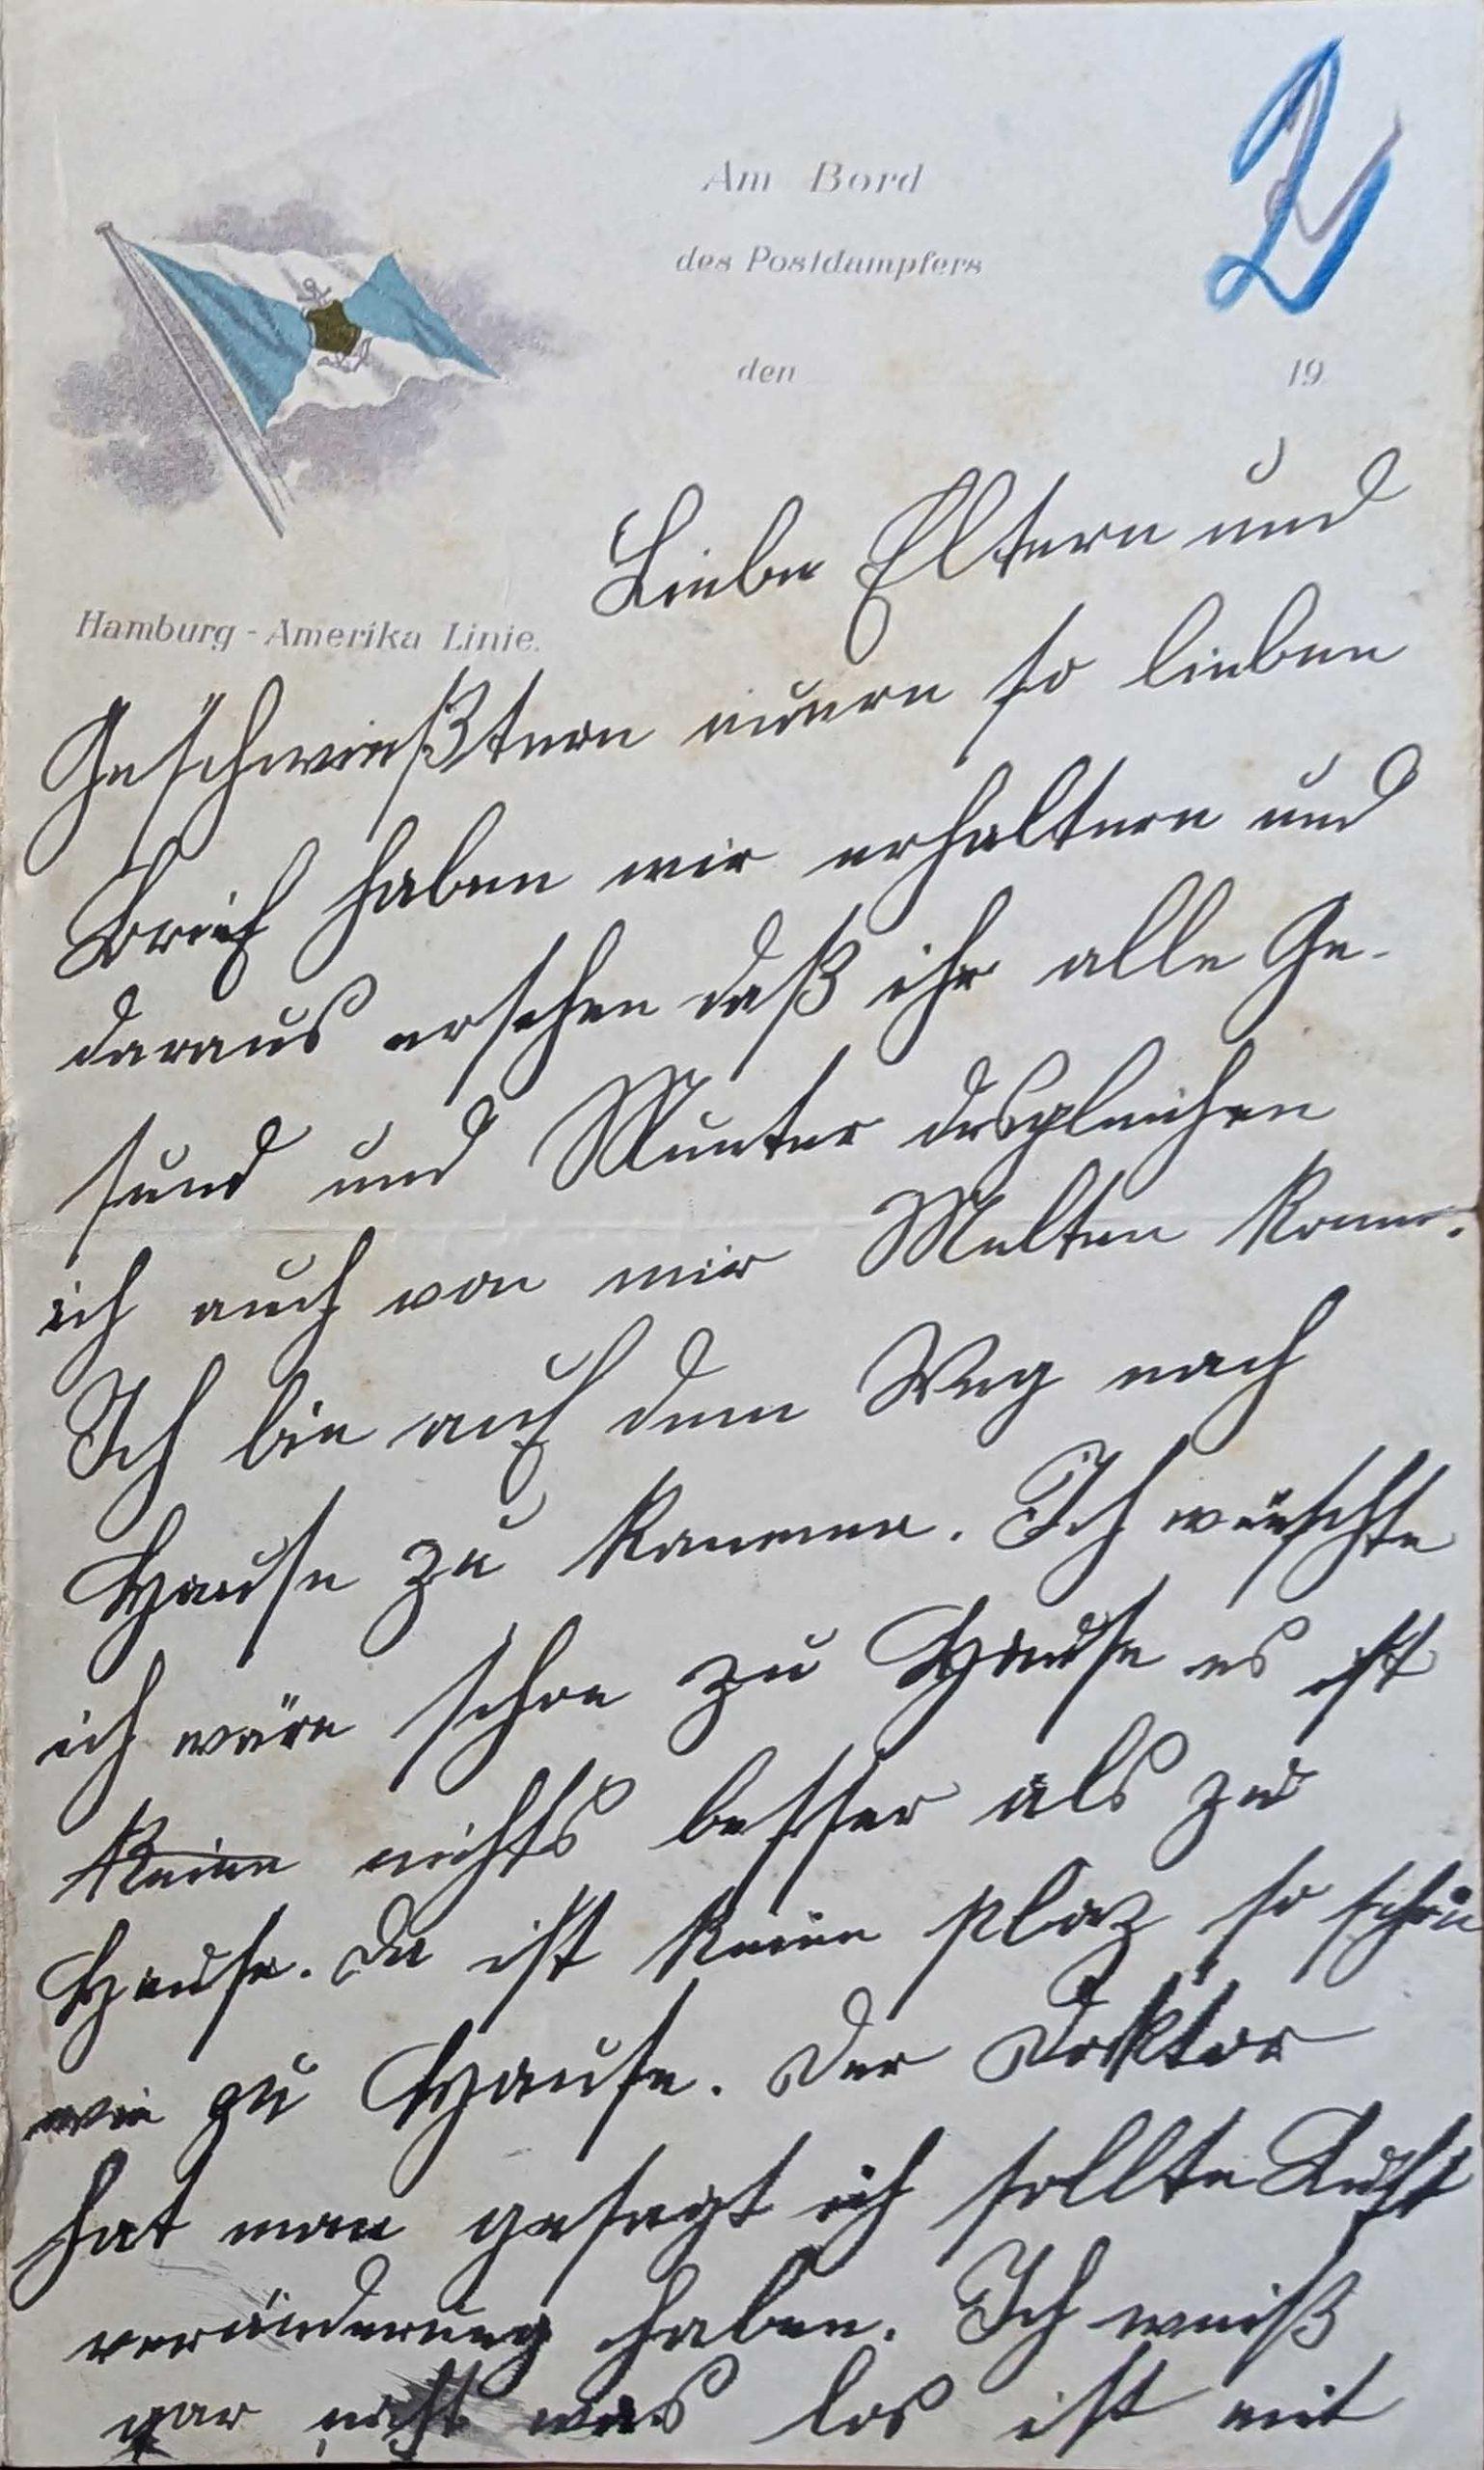 2
Am Bord
des Postdampfers
den 19
Hamburg-Amerika Linie.
Liebe Eltern und
Geschwießtern euern so lieben
Brief haben wir erhaltern und
daraus ersehen daß ihr alle Ge-
sund und Munter desgleichen
ich auch von mir Melten kann.
Ich bin auf dem Weg nach
Hause zu kommen. Ich wünschte
ich wäre schon zu Hause es ist
keine nichts besser als zu
Hause. Da ist keine Plaz so schön
wie zu Hause. Der Doktor
hat man gesagt ich sollte Luft
veränderung haben. Ich weiß
gar nicht was los ist mit